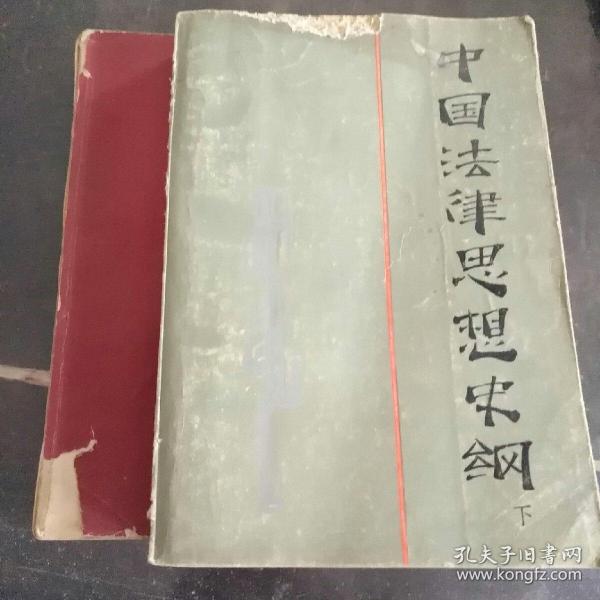 中国法律思想史纲
下
孔夫子旧书网
www.kongfz.com